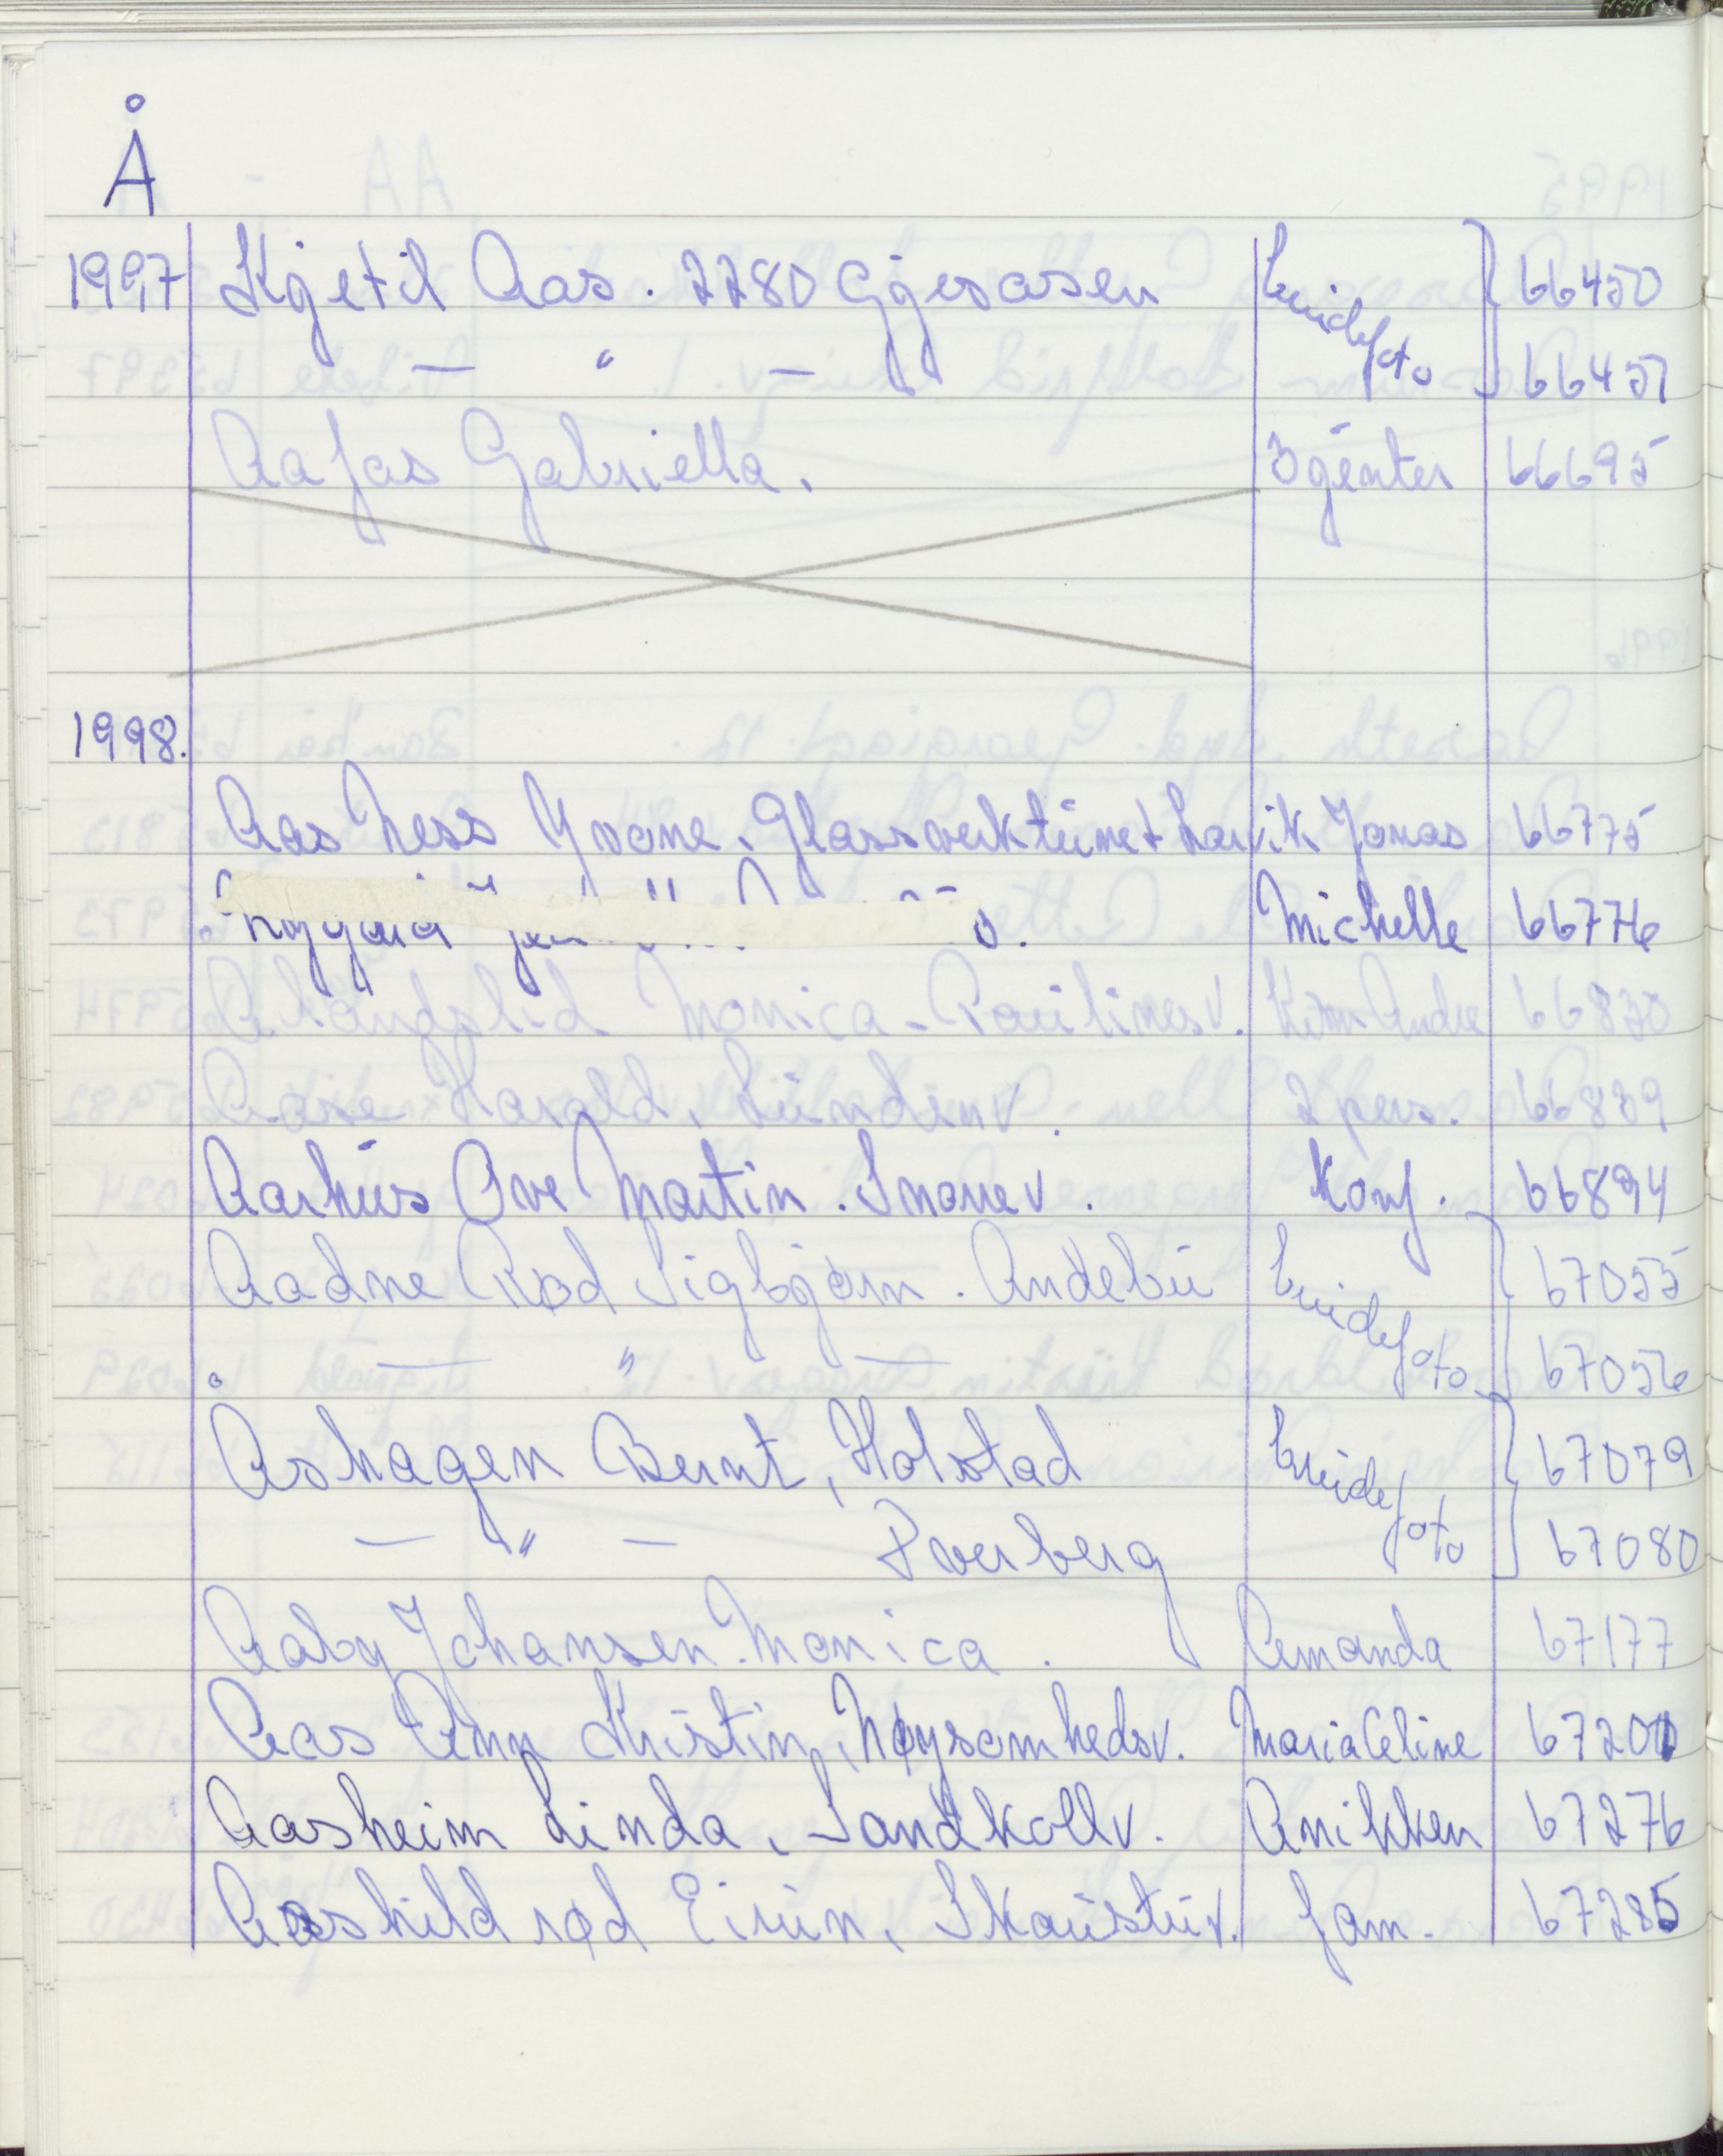 Å
1997 Kjetil Aas. 2280 Gjesåsen brudefoto 66450
— " — 66451
Aafas Gabriella. 3 jenter 66695
1998.
Aas Ness Yvone. Glassverktunet Larvik Jonas 66775
Michelle 66776
Monica - Paulinesv. Kim Andre 66830
Aase Harald, Lundenv. 2 pers. 66839
Aarhus Ove Martin. Snarev. Konf. 66894
Aadne Rød Sigbjørn. Andebu brudefoto 67055
— " — 67056
Åshagen Bernt, Holstad brudefoto 67079
— " — Tverberg 67080
Aaby Johansen Monica. Amanda 67177
Aas Ann Kristin, Nøysomhedsv. Maria Celine 67200
Aasheim Linda, Sandkollv. Anikken 67276
Aashild rød Eirun, Skaustuv. fam. 67285